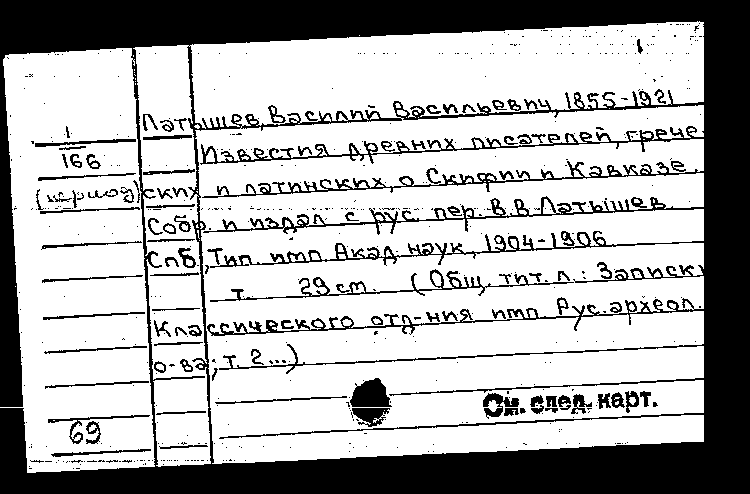 1
Латышев, Василий Васильевич, 1855-1921
1
166
Известия древних писателей, грече-
(период) ских и латинских, о Скифии и Кавказе.
Собр. и издал с рус. пер. В.В. Латышев.
Спб., Тип. имп. Акад. наук, 1904-1906
т. 29 см. (Общ. тит. л.: Записки
Классического отд-ния имп. Рус. археол.
о-ва; т. 2...)
См. след. карт.
69